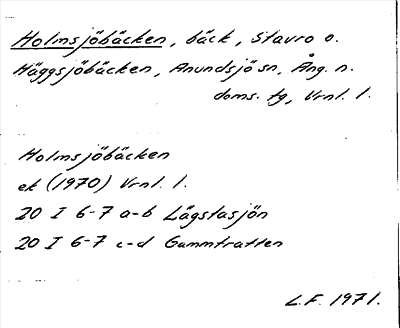 Holmsjöbäcken, bäck, Stavro o.
Häggsjöbäcken, Anundsjö sn, Ång. n.
doms. fg, Vrnl. l.
Holmsjöbäcken
ek (1970) Vrnl. l.
20 I 6-7 a-b Lägstasjön
20 I 6-7 c-d Gammtratten
L.F. 1971.